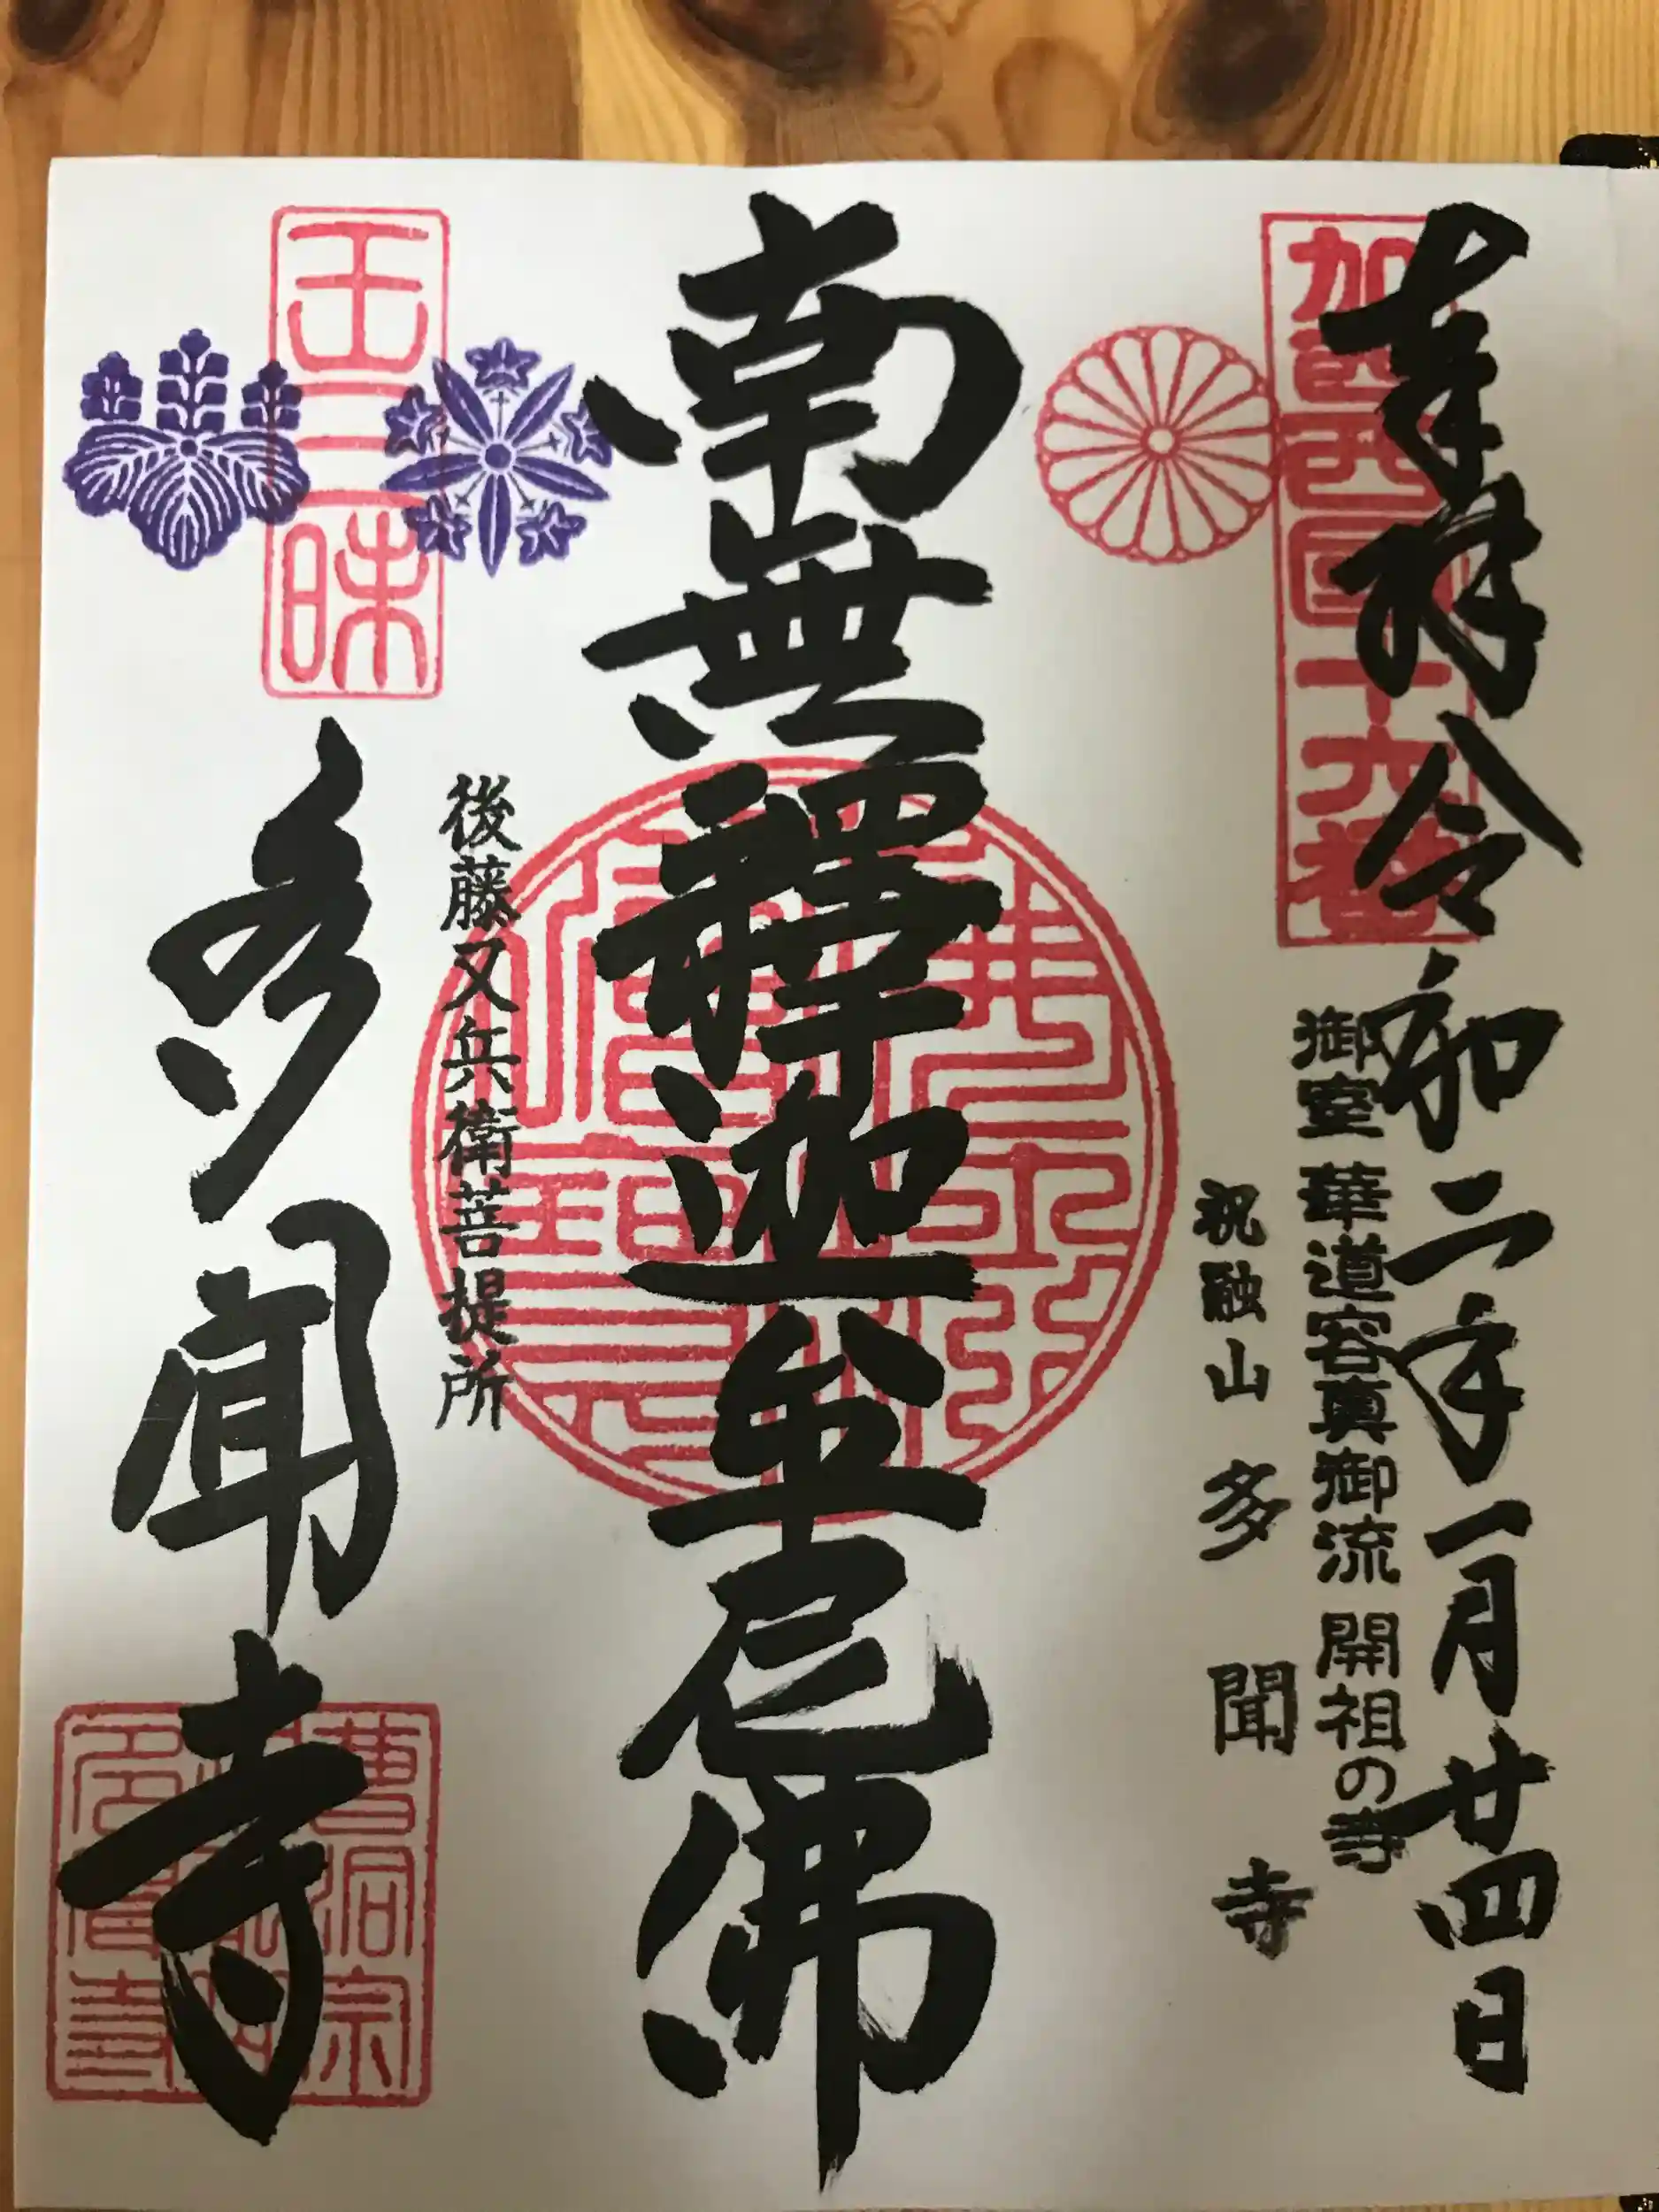 奉拝 令和二年一月廿四日
加西西国十九番
御室 華道容真御流 開祖の寺
祝融山 多聞寺
南無釋迦牟尼佛
後藤又兵衛菩提所
王三昧
多聞寺